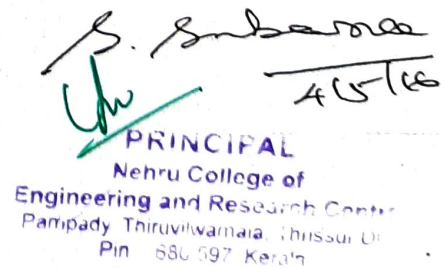 S.
4/5/16
PRINCIPAL
Nehru College of
Engineering and Research Centre
Pampady Thiruvilwamala, Thrissur Di
Pin 680 597 Kerala